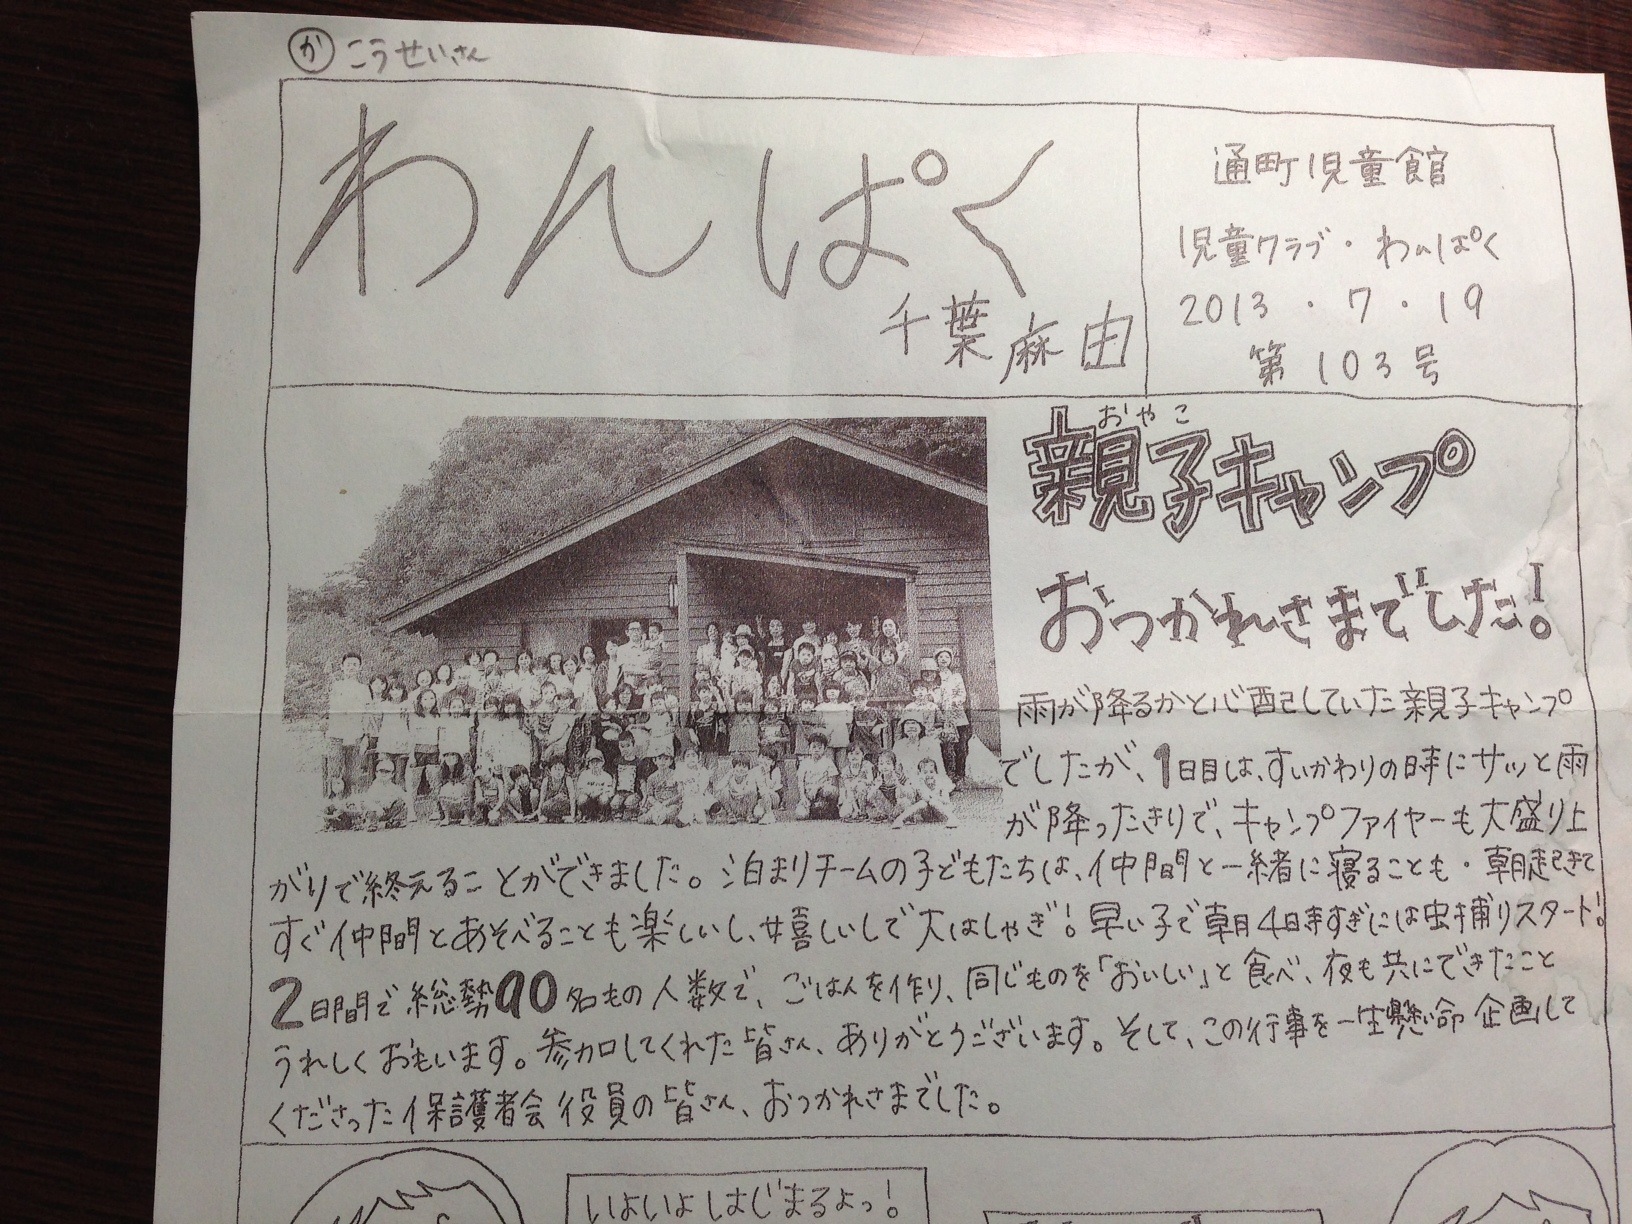 か こうせいさん
わんぱく
千葉麻由
通町児童館
児童クラブ・わんぱく
2013・7・19
第103号
おやこ
親子キャンプ
おつかれさまでした!
雨が降るかと心配していた親子キャンプ
でしたが、1日目は、すいかわりの時にサッと雨
が降ったきりで、キャンプファイヤーも大盛り上
がりで終えることができました。泊まりチームの子どもたちは、仲間と一緒に寝ることも・朝起きて
すぐ仲間とあそべることも楽しいし、嬉しいしで大はしゃぎ!早い子で朝4時すぎには虫捕りスタート!
2日間で総勢90名もの人数で、ごはんを作り、同じものを「おいしい」と食べ、夜も共にできたこと
うれしくおもいます。参加してくれた皆さん、ありがとうございます。そして、この行事を一生懸命企画して
くださった保護者会役員の皆さん、おつかれさまでした。
いよいよはじまるよっ!